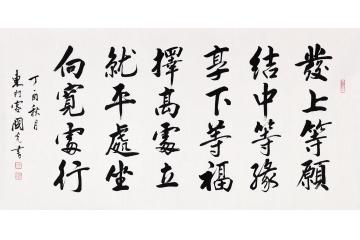 發上等願
結中等緣
享下等福
擇高處立
就平處坐
向寬處行
丁酉秋月